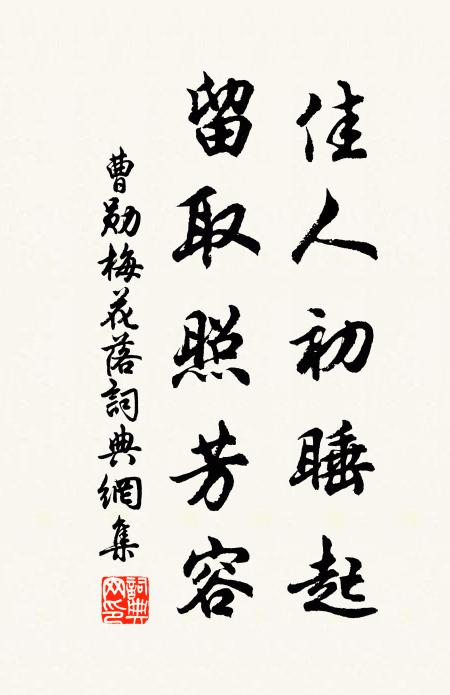 佳人初睡起
留取照芳容
曹勛梅花落詞典網集
詞典網印